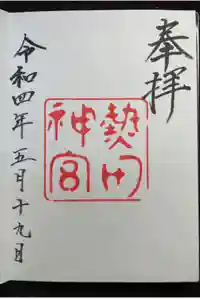 奉拝
熱田神宮
令和四年五月十九日